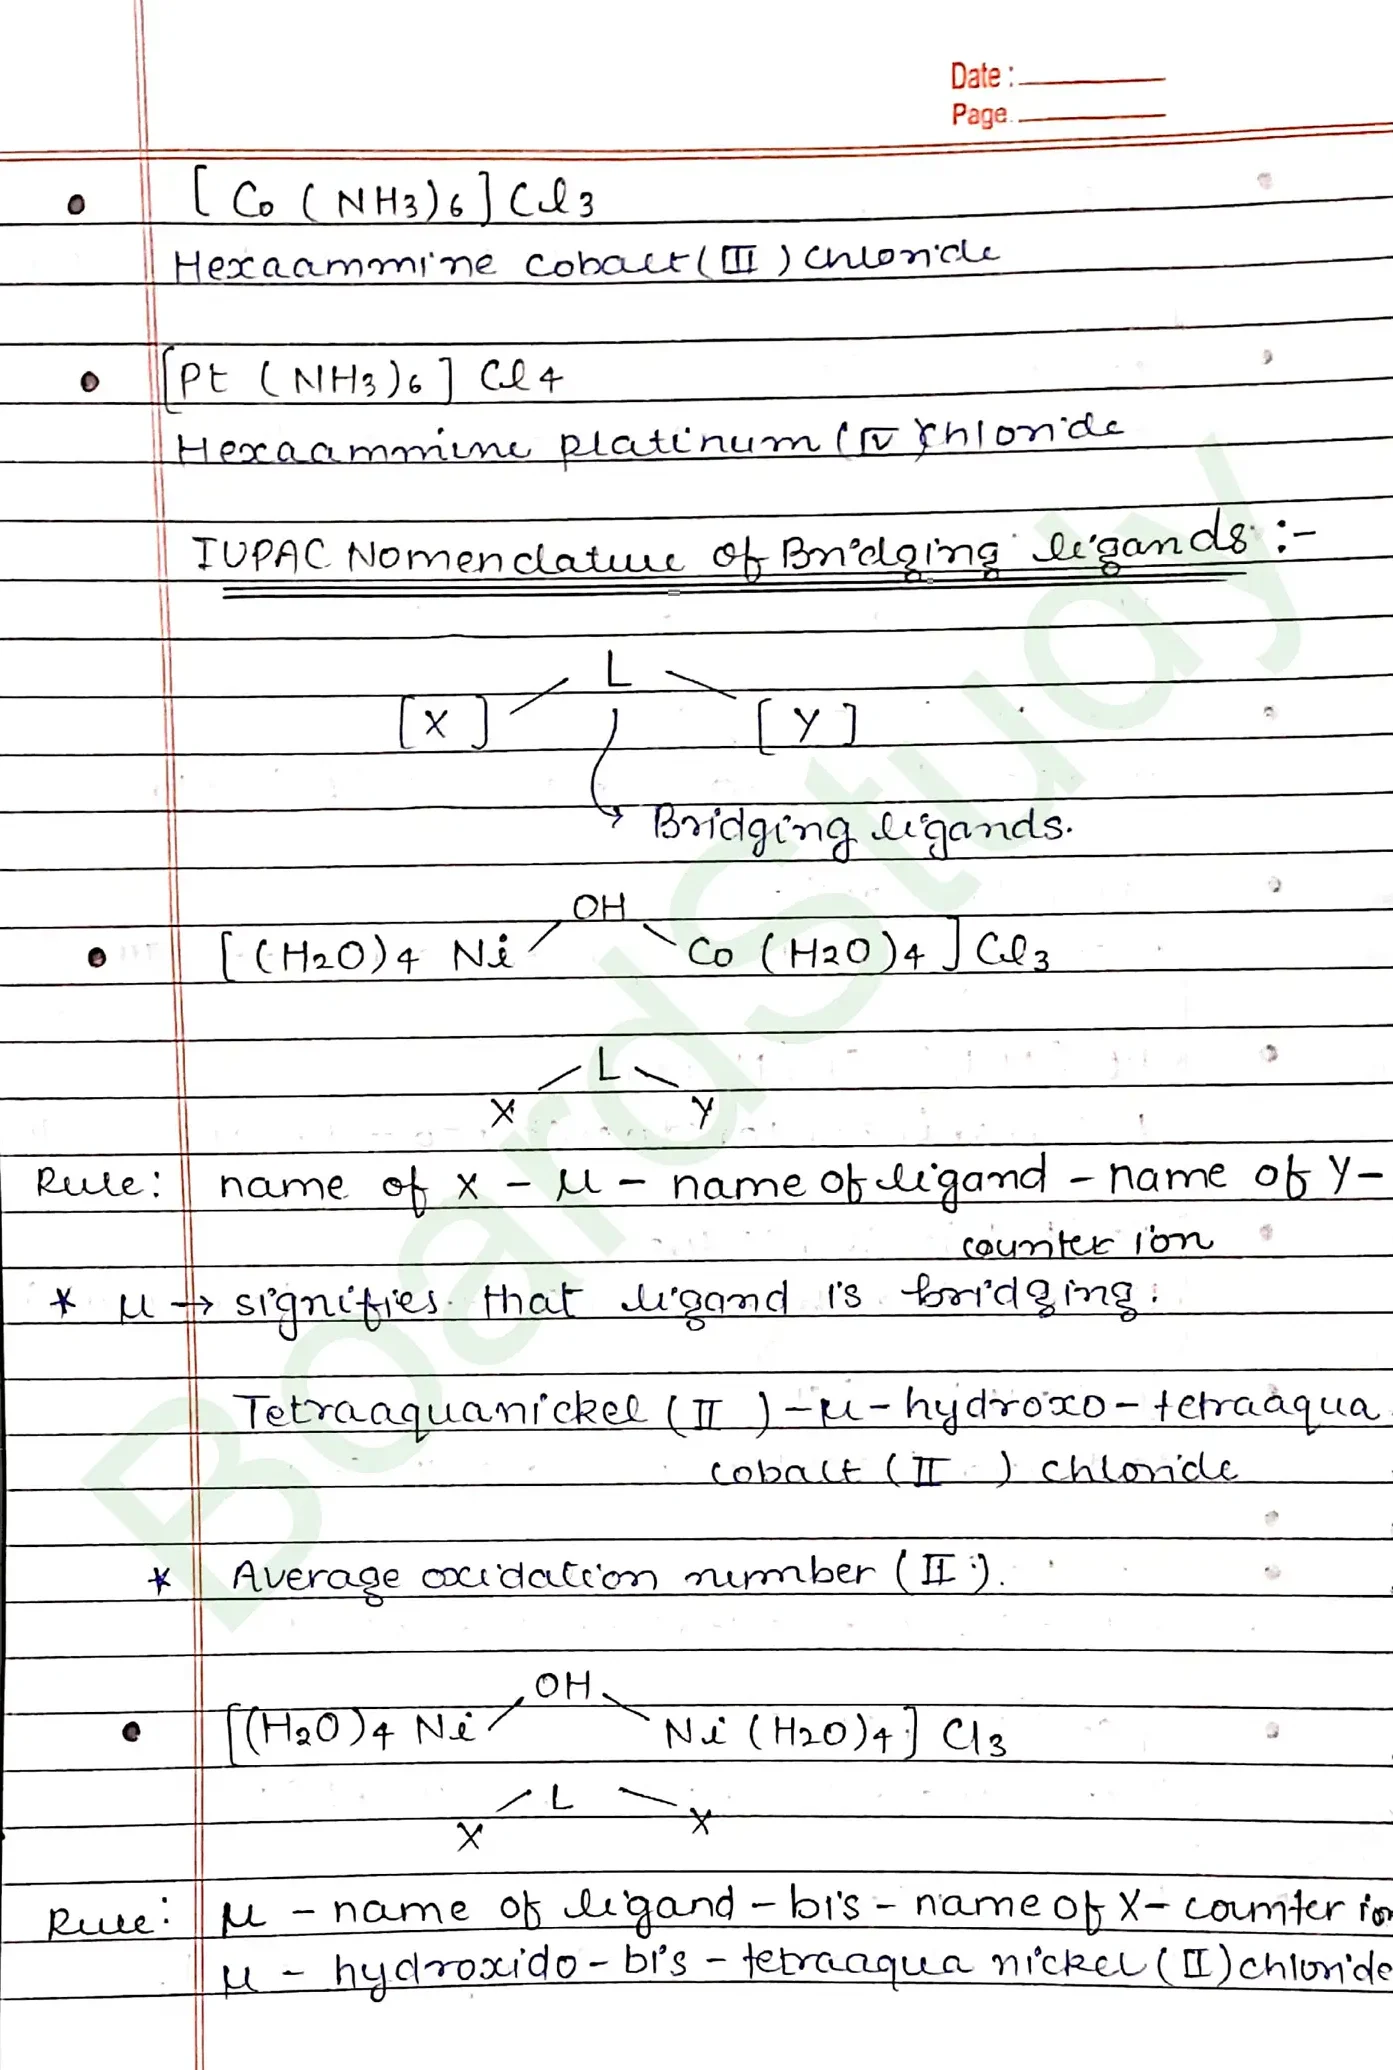 Date :
Page
[ Co ( NH3)6 ] Cl3
Hexaammine cobalt (III) chloride
[Pt ( NH3)6 ] Cl4
Hexaammine platinum (IV) chloride
IUPAC Nomenclature of Bridging ligands :-
L
[ X ] [ Y ]
Bridging ligands.
OH
[ (H2O)4 Ni Co ( H2O)4 ] Cl3
L
X Y
Rule: name of X - μ - name of ligand - name of Y -
counter ion
* μ → signifies that ligand is bridging.
Tetraaquanickel (II) - μ - hydroxo - tetraaqua
cobalt (II) chloride
* Average oxidation number (II).
OH
[(H2O)4 Ni Ni (H2O)4] Cl3
L
X X
Rule: μ - name of ligand - bis - name of X - counter ion
μ - hydroxido - bis - tetraaqua nickel (II) chloride
BoardStudy